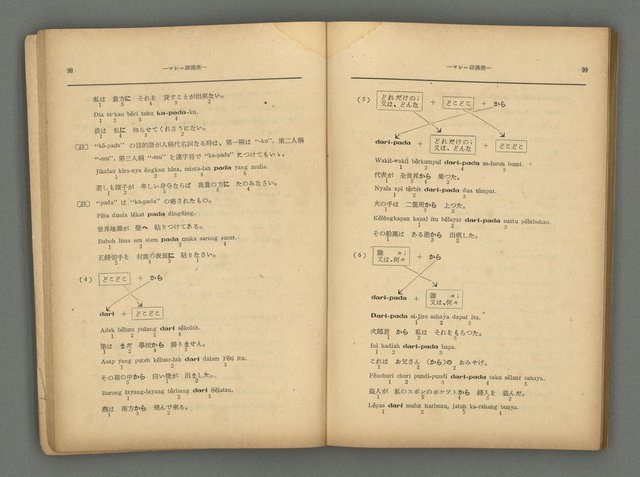 98
—マレー語講座—
私は 貴方に それを 貸すことが出來ない。
1 5 4 3 2
Dia ta'kan bĕri tahu ka-pada-ku.
1 2 3 4
彼は 私に 知らせてくれさうにない。
[註] "ka-pada" の目的語が人稱代名詞なる時は、第一稱は "-ku", 第二人稱
"-mu", 第三人稱 "-nya" を連字符で "ka-pada" につけてもいゝ。
Jikalau kira-nya ĕngkau hina, minta-lah pada yang mulia.
若しも諸子が 卑しい身分ならば 高貴の方に たのみなさい。
[註] "pada" は "ka-pada" の略されたもの。
Pĕta dunia lĕkat pada dingding.
世界地圖が 壁へ 貼りつけてある。
Buboh lima sen stem pada muka sarong surat.
五錢切手を 封筒の表面に 貼りなさい。
(4) どこどこ + から
dari + どこどこ
Adek bĕlum pulang dari sĕkolah.
1 2 3 4
弟は まだ 學校から 歸りません。
1 2 4 3
Asap yang puteh kĕluar-lah dari dalam Pĕti itu.
その箱の中から 白い煙が 出ました。
Burong layang-layang tĕrbang dari Sĕlatan.
1 2 3
燕は 南方から 飛んで來る。
1 3 2
—マレー語講座—
99
(5) どれだけの；又は、どんな + どこどこ + から
dari-pada + どれだけの；又は、どんな + どこどこ
Wakil-wakil bĕrkumpul dari-pada sa-luroh bumi.
1 2 3
代表が 全世界から 集つた。
1 3 2
Nyala api tĕrbit dari-pada dua tĕmpat.
1 2 3
火の手は 二箇所から 上つた。
1 3 2
Kĕlĕngkapan kapal itu bĕlayar dari-pada suatu pĕlabohan.
1 2 3
その船團は ある港から 出帆した。
1 3 2
(6) 誰々；又は、何々 + から
dari-pada + 誰々；又は、何々
Dari-pada si-Jiro sahaya dapat itu.
1 2 3 4
次郎君 から 私は それをもらつた。
Ini hadiah dari-pada bapa.
1 2 3 4
これは お父さん (から)の おみやげ。
1 4 3 2
Pĕnchuri churi pundi-pundi dari-pada saku sĕluar sahaya.
1 2 3 4 5
盜人が 私のズボンのポケツトから 錢入を 盜んだ。
Lĕpas dari mulut harimau, jatoh ka-rahang buaya.